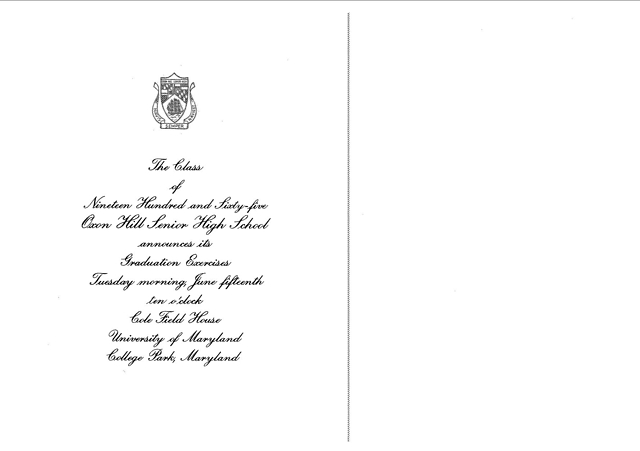 SEMPER
The Class
of
Nineteen Hundred and Sixty-five
Oxon Hill Senior High School
announces its
Graduation Exercises
Tuesday morning, June fifteenth
ten o'clock
Cole Field House
University of Maryland
College Park, Maryland